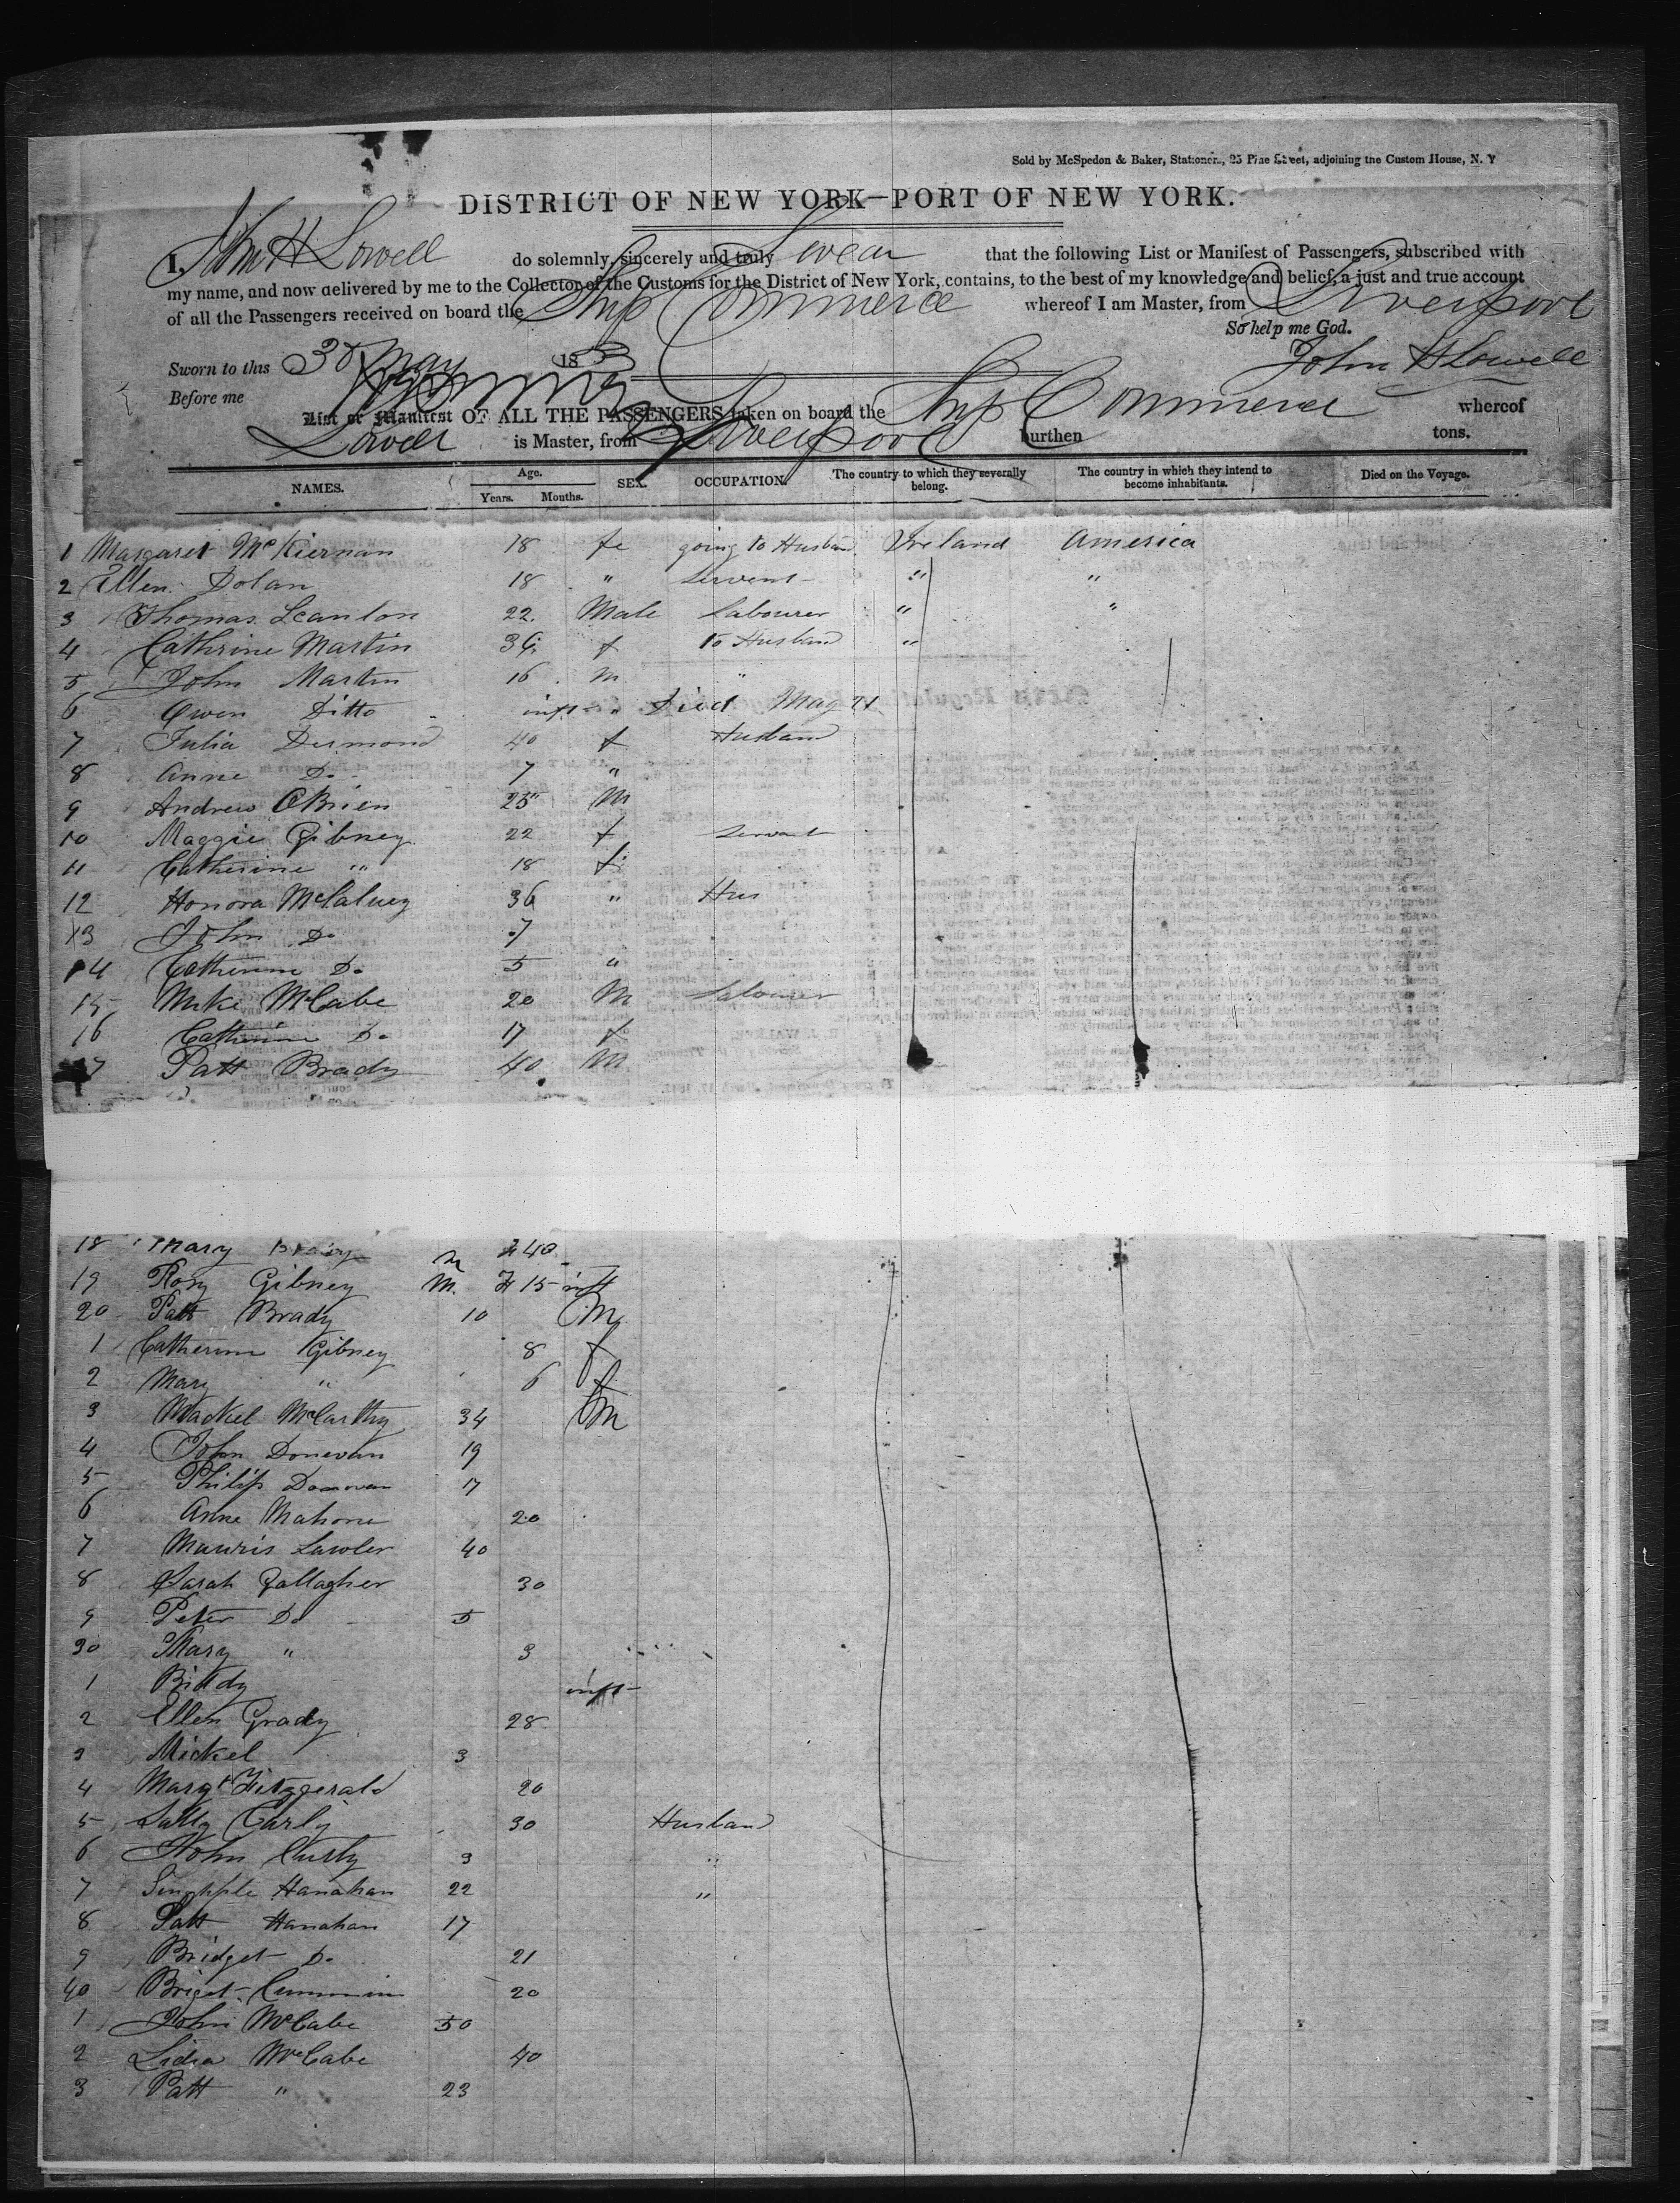 Sold by McSpedon & Baker, Stationers, 25 Pine Street, adjoining the Custom House, N. Y
DISTRICT OF NEW YORK—PORT OF NEW YORK.
I, John H Lowell do solemnly, sincerely and truly Swear that the following List or Manifest of Passengers, subscribed with
my name, and now delivered by me to the Collector of the Customs for the District of New York, contains, to the best of my knowledge and belief, a just and true account
of all the Passengers received on board the Ship Commerce whereof I am Master, from Liverpool
So help me God.
Sworn to this 30 May 1853 John H Lowell
Before me
List or Manifest OF ALL THE PASSENGERS taken on board the Ship Commerce whereof
Lowell is Master, from Liverpool burthen tons.
NAMES. Age. Years. Months. SEX. OCCUPATION. The country to which they severally belong. The country in which they intend to become inhabitants. Died on the Voyage.
1 Margaret McKiernan 18 fe going to Husband Ireland America
2 Ellen Dolan 18 " Servent " "
3 Thomas Scanlon 22 Male Labourer " "
4 Cathrine Martin 36 f to Husband "
5 John Martin 16 m "
6 Owen Ditto inft " Died May 21
7 Julia Dermond 40 f Husband
8 Anne Do 7 "
9 Andrew OBrien 25 M
10 Maggie Gibney 22 f Servant
11 Catherine " 18 f
12 Honora McCaluey 36 " Hus
13 John Do 7
14 Catherine Do 5 "
15 Mike McCabe 20 M Labourer
16 Catherine Do 17 f
17 Patt Brady 40 M
18 Mary Brady 40
19 Rosy Gibney M. 15 inft
20 Patt Brady 10 M
1 Catherine Gibney 8 f
2 Mary " 6 f
3 Mackel McCarthy 34 m
4 John Donevan 19
5 Philip Donovan 17
6 Anne Mahone 20
7 Mauris Lawler 40
8 Sarah Gallagher 30
9 Peter Do 5
30 Mary " 3
1 Biddy inft
2 Ellen Grady 28
3 Mickel 3
4 Margt Fitzgerald 20
5 Sally Carly 30 Husband
6 John Curly 3 "
7 Hanahan 22 "
8 Patt Hanahan 17
9 Bridget Do 21
40 Briget Cummin 20
1 John McCabe 50
2 Lidia McCabe 40
3 Patt " 23